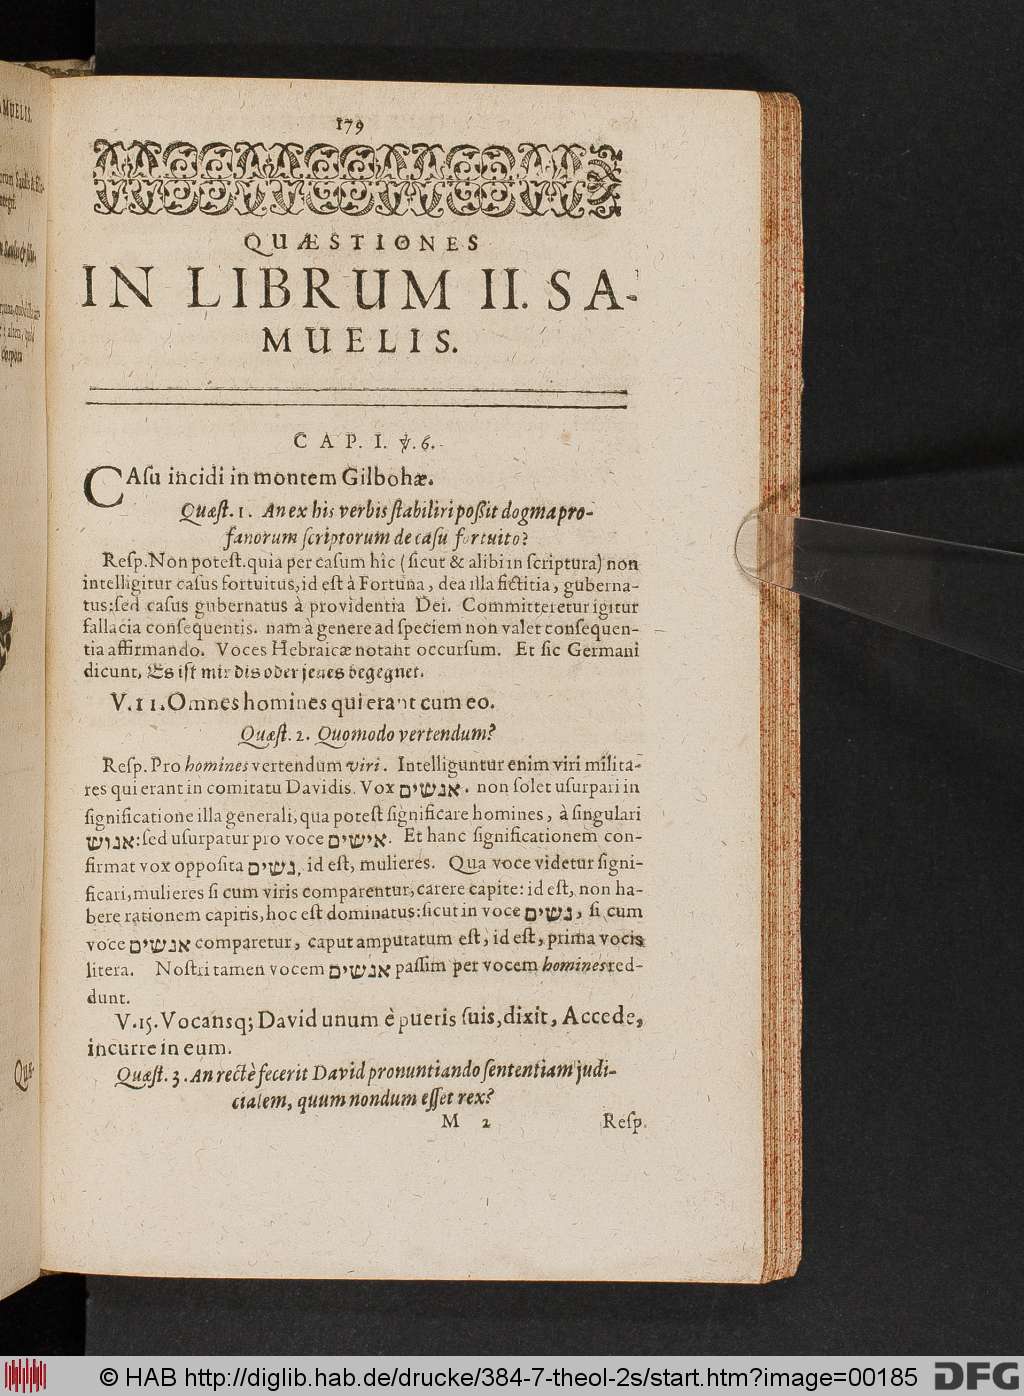 AMUELIS.
179
QUÆSTIONES
IN LIBRUM II. SA-
MUELIS.
CAP. I. ℣. 6.
CAſu incidi in montem Gilbohæ.
Quæſt. 1. An ex his verbis ſtabiliri poßit dogma pro-
fanorum ſcriptorum de caſu fortuito?
Reſp. Non poteſt. quia per caſum hîc (ſicut & alibi in ſcriptura) non
intelligitur caſus fortuitus, id eſt à Fortuna, dea illa fictitia, guberna-
tus: ſed caſus gubernatus à providentia Dei. Committeretur igitur
fallacia conſequentis. nam à genere ad ſpeciem non valet conſequen-
tia affirmando. Voces Hebraicæ notant occurſum. Et ſic Germani
dicunt, Es iſt mir dis oder jenes begegnet.
V. 11. Omnes homines qui erant cum eo.
Quæſt. 2. Quomodo vertendum?
Reſp. Pro homines vertendum viri. Intelliguntur enim viri milita-
res qui erant in comitatu Davidis. Vox אנשים. non ſolet uſurpari in
ſignificatione illa generali, qua poteſt ſignificare homines, à ſingulari
אנוש: ſed uſurpatur pro voce אישים. Et hanc ſignificationem con-
firmat vox oppoſita נשים, id eſt, mulieres. Qua voce videtur ſigni-
ficari, mulieres ſi cum viris comparentur, carere capite: id eſt, non ha-
bere rationem capitis, hoc eſt dominatus: ſicut in voce נשים, ſi cum
voce אנשים comparetur, caput amputatum eſt, id eſt, prima vocis
litera. Noſtri tamen vocem אנשים paſſim per vocem homines red-
dunt.
V. 15. Vocansq; David unum è pueris ſuis, dixit, Accede,
incurre in eum.
Quæſt. 3. An rectè fecerit David pronuntiando ſententiam judi-
cialem, quum nondum eſſet rex?
M 2 Reſp.
Quæ-
© HAB http://diglib.hab.de/drucke/384-7-theol-2s/start.htm?image=00185
DFG